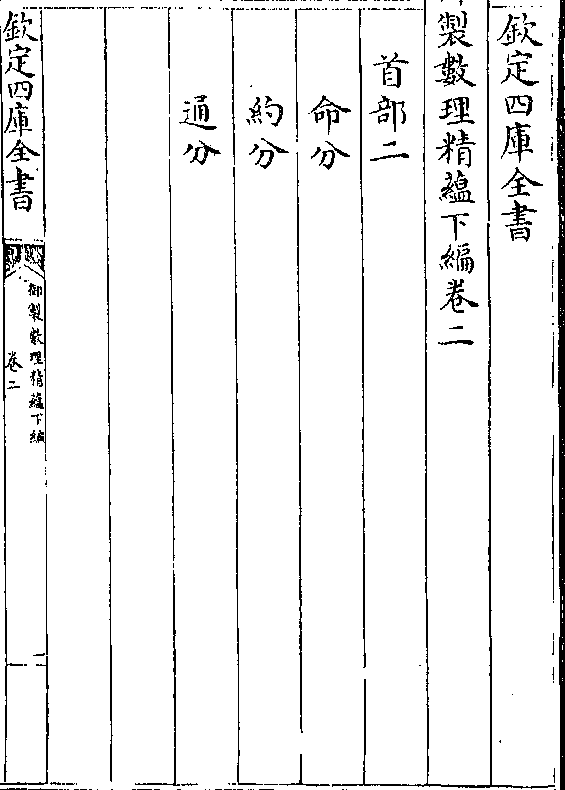 欽定四庫全書
製數理精蘊下編卷二
首部二
命分
約分
通分
欽定四庫全書
御製數理精蘊下編
卷二
一